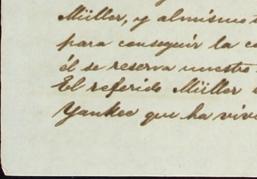 Müller, y al mismo
para conseguir la
él se reserva nuestro
El referido Müller
Yankee que ha